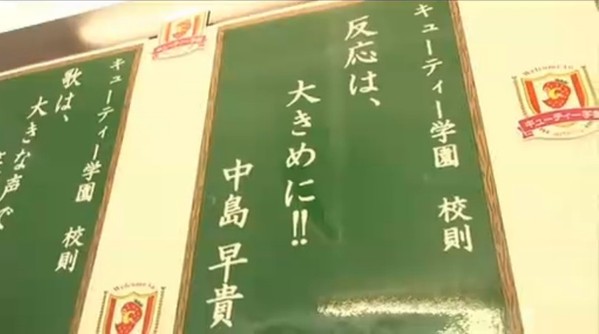 キューティー学園 校則
反応は、
大きめに!!
中島 早貴
キューティー学園 校則
歌は、
大きな声で
Welcome to
キューティー学園
Welcome to